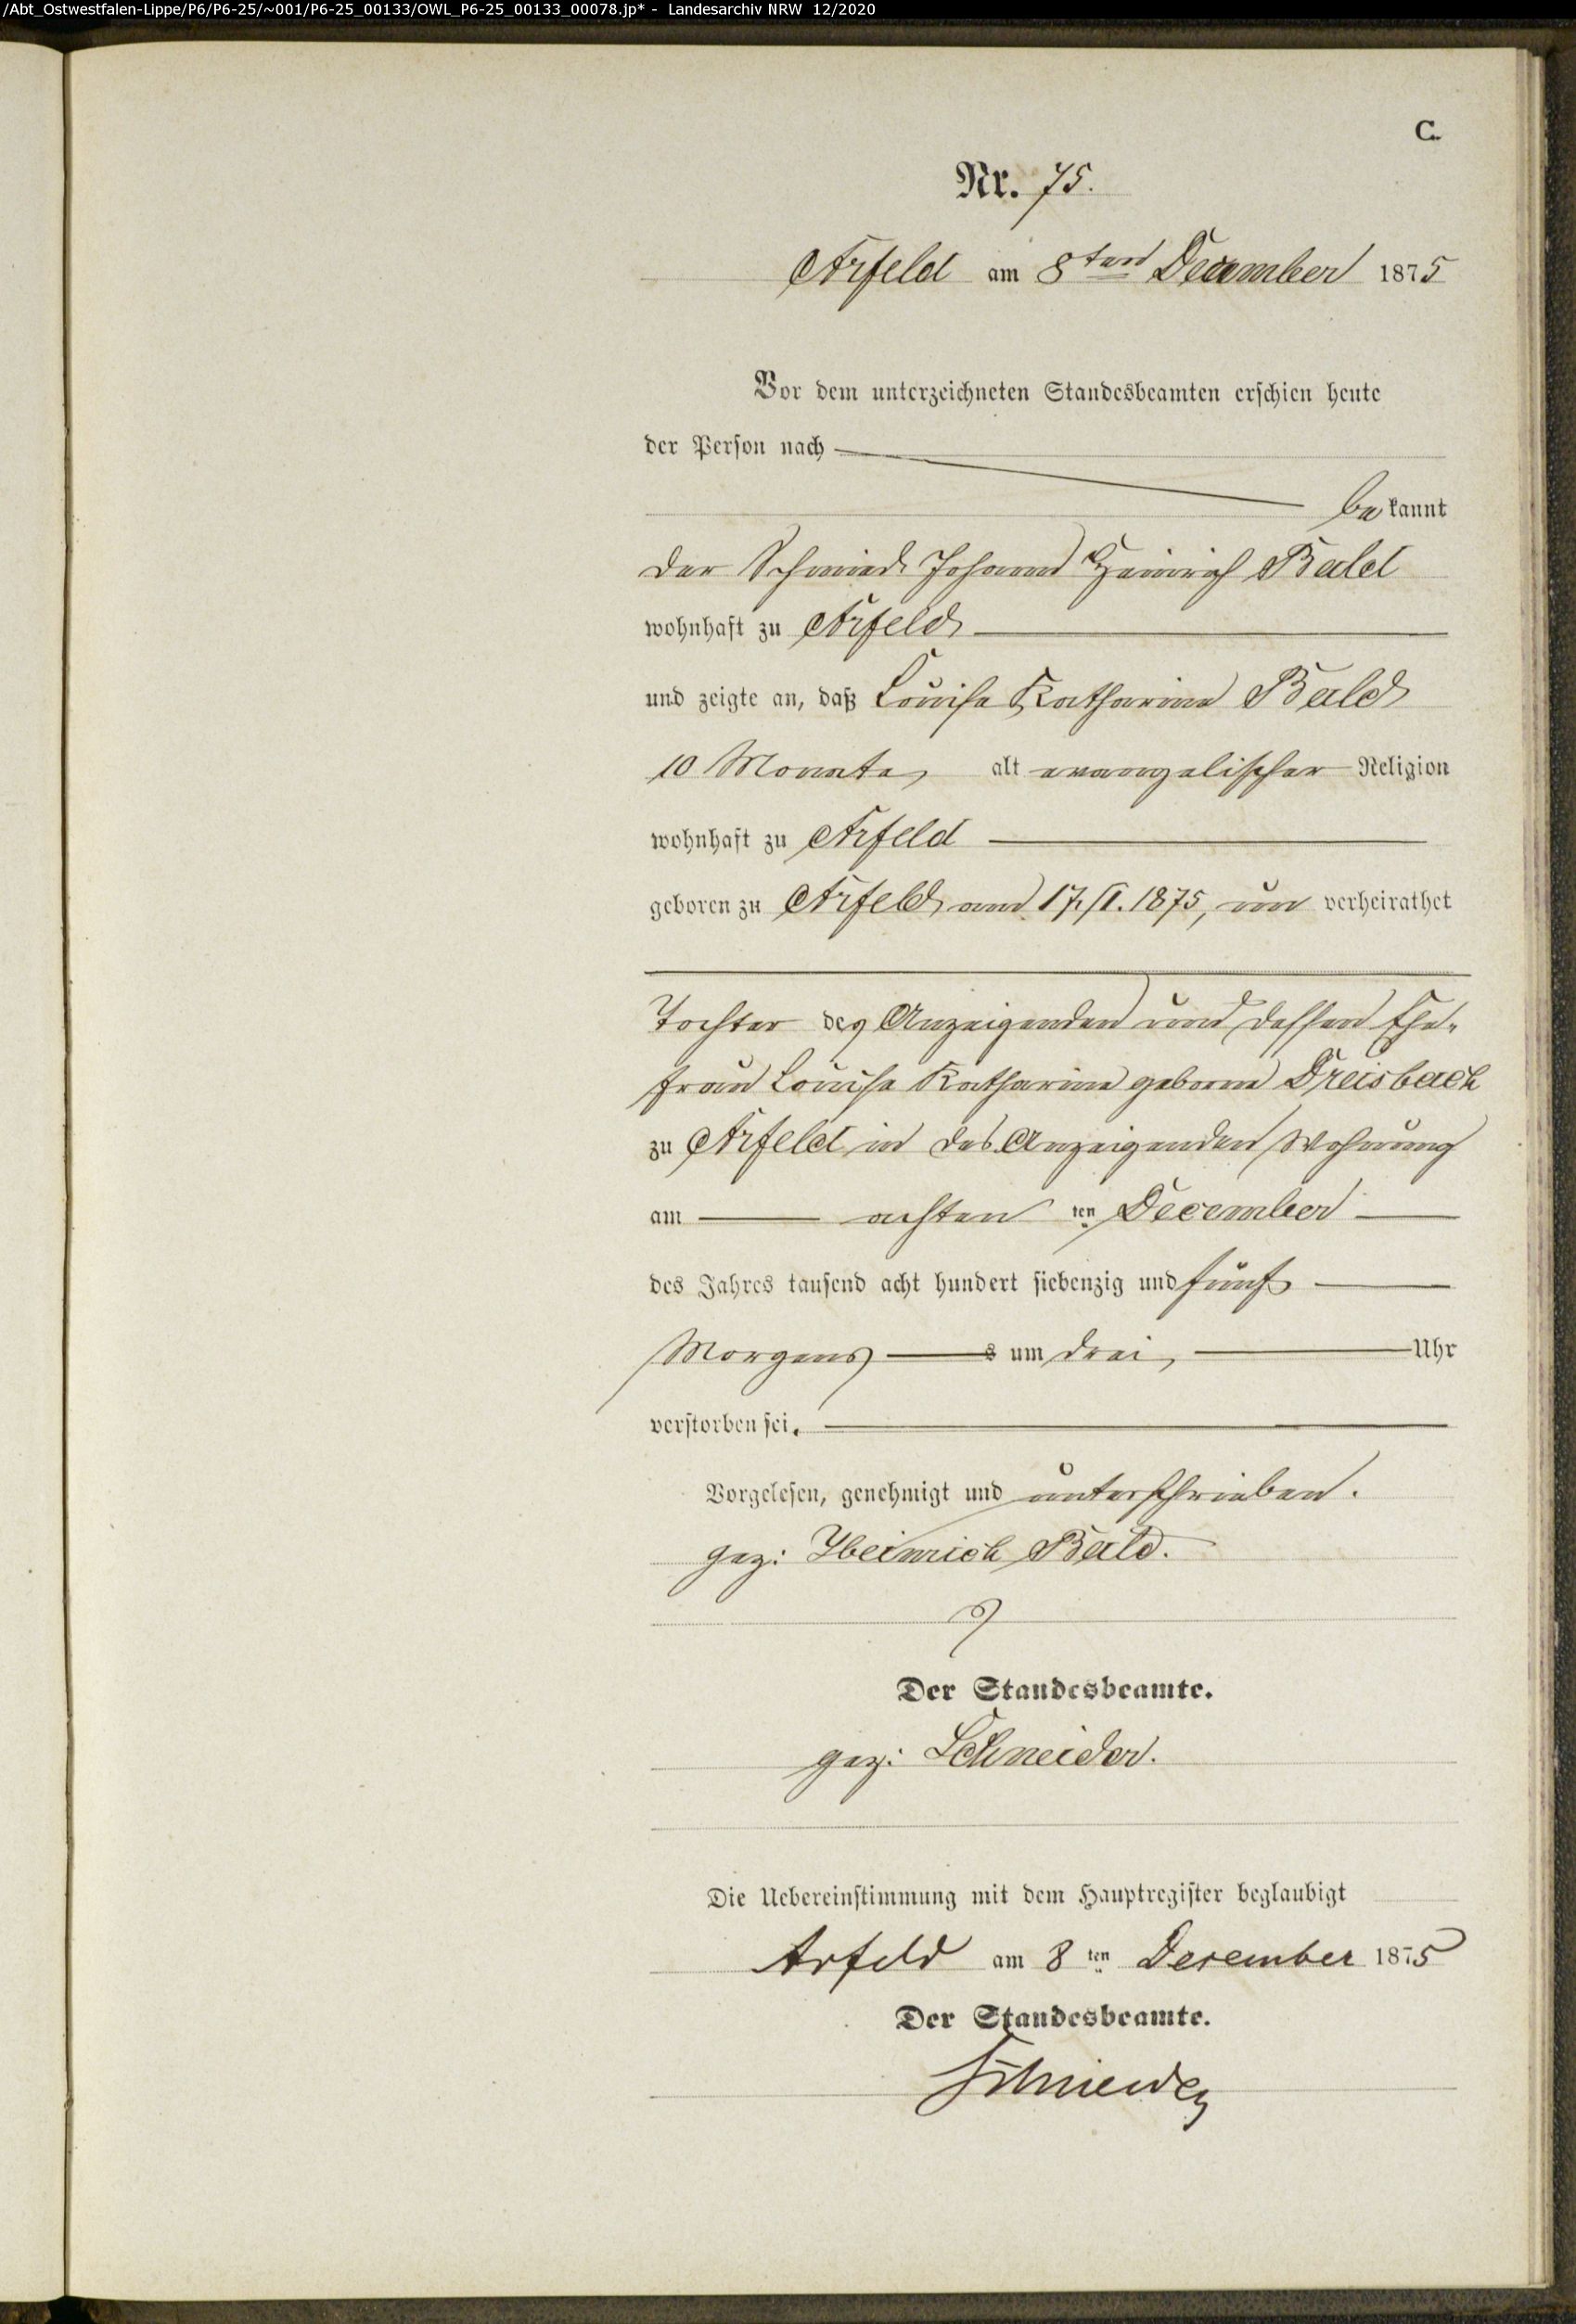 /Abt_Ostwestfalen-Lippe/P6/P6-25/~001/P6-25_00133/OWL_P6-25_00133_00078.jp* - Landesarchiv NRW 12/2020
C.
Nr. 75.
Arfeld am 8ten December 1875
Vor dem unterzeichneten Standesbeamten erschien heute
der Person nach
bekannt
der Schmied Johann Heinrich Bald
wohnhaft zu Arfeld
und zeigte an, daß Louise Katharine Bald
10 Monate alt evangelischer Religion
wohnhaft zu Arfeld
geboren zu Arfeld am 17./II. 1875, un verheirathet
Tochter des Anzeigenden und dessen Ehe-
frau Louise Katharine geborne Dreisbach
zu Arfeld in des Anzeigenden Wohnung
am achten ten December
des Jahres tausend acht hundert siebenzig und fünf
Morgens s um drei Uhr
verstorben sei.
Vorgelesen, genehmigt und unterschrieben.
gez: Heinrich Bald.
Der Standesbeamte.
gez: Schneider.
Die Uebereinstimmung mit dem Hauptregister beglaubigt
Arfeld am 8 ten December 1875
Der Standesbeamte.
Schneider